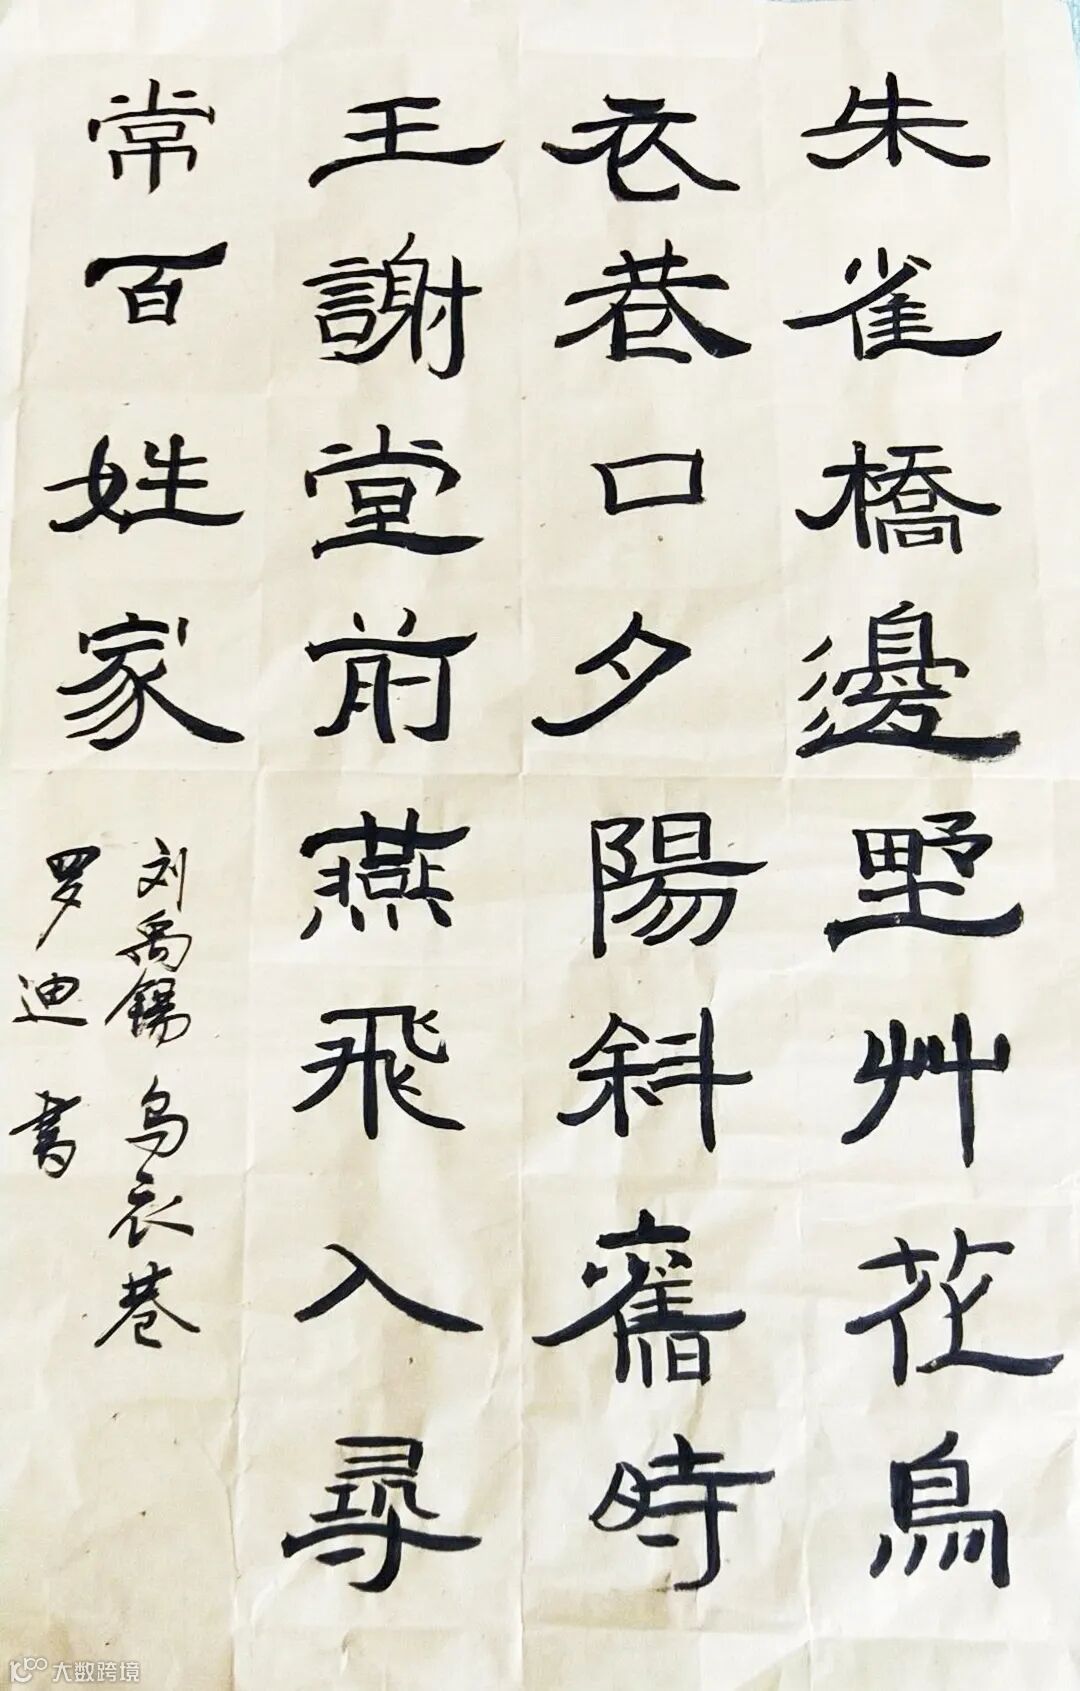 朱雀橋邊野艸花烏
衣巷口夕陽斜舊時
王謝堂前燕飛入尋
常百姓家
刘禹锡 乌衣巷
罗迪 書
大数跨境